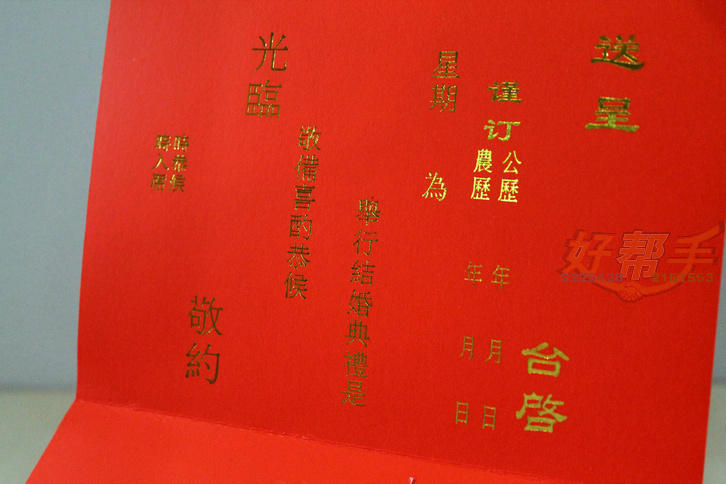 送呈
台啓
謹訂
公歷 年 月 日
農歷 年 月 日
星期
為
舉行結婚典禮是
敬備喜酌恭候
光臨
敬約
時恭候
入席
好帮手